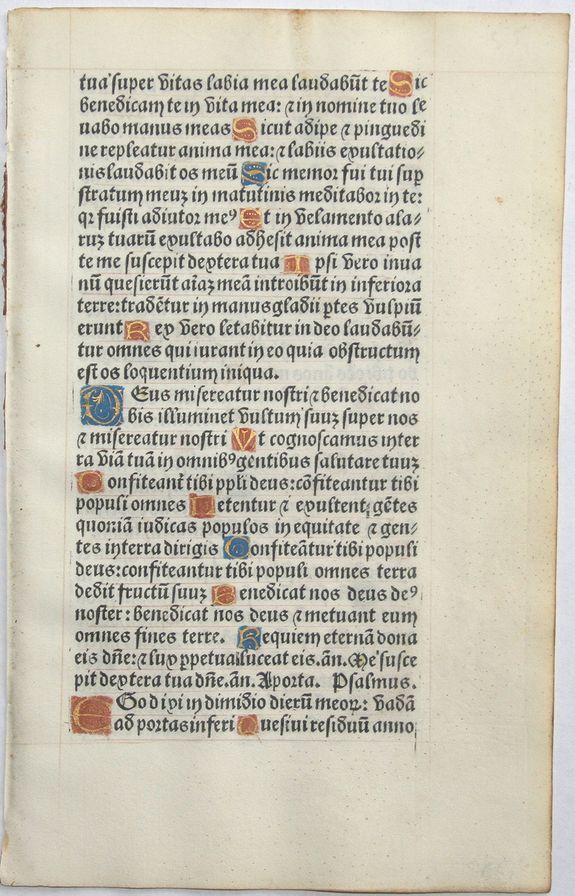 tua super vitas labia mea laudabūt te Sic
benedicam te in vita mea: ⁊ in nomine tuo le
uabo manus meas Sicut adipe ⁊ pinguedi
ne repleatur anima mea: ⁊ labiis exultatio⸗
nis laudabit os meū Sic memor fui tui sup
stratum meuʒ in matutinis meditabor in te:
qꝛ fuisti adiutor me⁹ Et in velamento ala⸗
ruʒ tuarū exultabo adhesit anima mea post
te me suscepit dextera tua Ipsi vero inua
nū quesierūt aīaʒ meā introibūt in inferiora
terre: tradētur in manus gladii ꝑtes vulpiū
erunt Rex vero letabitur in deo laudabū⸗
tur omnes qui iurant in eo quia obstructum
est os loquentium iniqua.
DEus misereatur nostri ⁊ benedicat no
bis illuminet vultum suuʒ super nos
⁊ misereatur nostri Vt cognoscamus in ter
ra viā tuā in omnib⁹ gentibus salutare tuuʒ
Confiteant tibi ppli deus: cōfiteantur tibi
populi omnes Letentur ⁊ exultent gētes
quoniā iudicas populos in equitate ⁊ gen⸗
tes in terra dirigis Confiteātur tibi populi
deus: confiteantur tibi populi omnes terra
dedit fructū suuʒ Benedicat nos deus de⁹
noster: benedicat nos deus ⁊ metuant eum
omnes fines terre. Requiem eternā dona
eis dn̄e: ⁊ lux ꝑpetua luceat eis. an. Me susce
pit dextera tua dn̄e. an. A porta. Psalmus.
EGo dixi in dimidio dierū meoꝝ: vadā
ad portas inferi Quesiui residuū anno